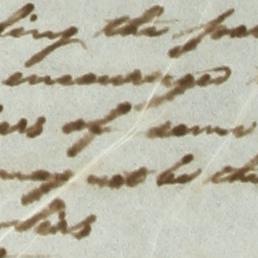 ling the pa
encouraged
ers of some
may not be the